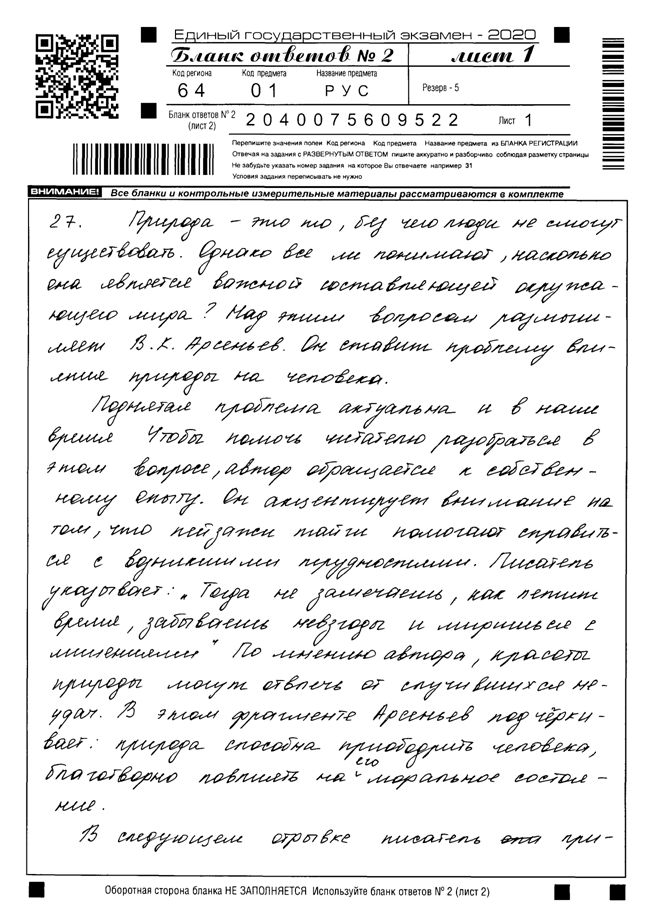 Единый государственный экзамен - 2020
Бланк ответов № 2 лист 1
Код региона Код предмета Название предмета
64 01 РУС Резерв - 5
Бланк ответов № 2 (лист 2) 2040075609522 Лист 1
Перепишите значения полей Код региона Код предмета Название предмета из БЛАНКА РЕГИСТРАЦИИ
Отвечая на задания с РАЗВЕРНУТЫМ ОТВЕТОМ пишите аккуратно и разборчиво соблюдая разметку страницы
Не забудьте указать номер задания на которое Вы отвечаете например 31
Условия задания переписывать не нужно
ВНИМАНИЕ! Все бланки и контрольные измерительные материалы рассматриваются в комплекте
27. Природа – это то, без чего люди не смогут
существовать. Однако все ли понимают, насколько
она является важной составляющей окружа-
ющего мира? Над этим вопросом размыш-
ляет В.К. Арсеньев. Он ставит проблему вли-
яния природы на человека.
Поднятая проблема актуальна и в наше
время Чтобы помочь читателю разобраться в
этом вопросе, автор обращается к собствен-
ному опыту. Он акцентирует внимание на
том, что пейзажи тайги помогают справить-
ся с возникшими трудностями. Писатель
указывает: „Тогда не замечаешь, как летит
время, забываешь невзгоды и миришься с
лишениями" По мнению автора, красоты
природы могут отвлечь от случившихся не-
удач. В этом фрагменте Арсеньев подчёрки-
вает: природа способна приободрить человека,
благотворно повлиять на его моральное состоя-
ние.
В следующем отрывке писатель при-
Оборотная сторона бланка НЕ ЗАПОЛНЯЕТСЯ Используйте бланк ответов № 2 (лист 2)